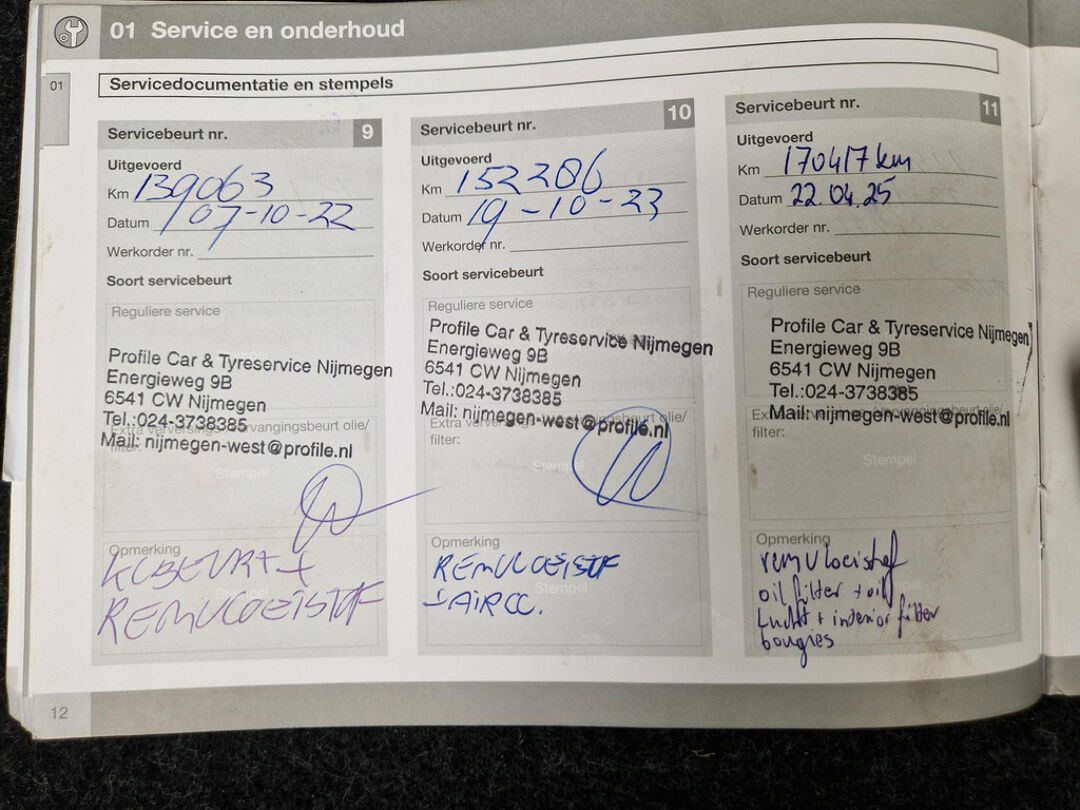 01 Service en onderhoud
01
Servicedocumentatie en stempels
Servicebeurt nr. 9
Uitgevoerd
Km 139063
Datum 07-10-22
Werkorder nr.
Soort servicebeurt
Reguliere service
Profile Car & Tyreservice Nijmegen
Energieweg 9B
6541 CW Nijmegen
Tel.:024-3738385
Extra verversings-/vervangingsbeurt olie/
filter:
Mail: nijmegen-west@profile.nl
Stempel
Opmerking
BEURT +
REMVLOEISTOF
Stempel
Servicebeurt nr. 10
Uitgevoerd
Km 152286
Datum 19-10-23
Werkorder nr.
Soort servicebeurt
Reguliere service
Profile Car & Tyreservice Nijmegen
Energieweg 9B
6541 CW Nijmegen
Tel.:024-3738385
Mail: nijmegen-west@profile.nl
Extra verversings-/vervangingsbeurt olie/
filter:
Stempel
Opmerking
REMVLOEISTOF
+ AIRCO.
Stempel
Servicebeurt nr. 11
Uitgevoerd
Km 170417 km
Datum 22.04.25
Werkorder nr.
Soort servicebeurt
Reguliere service
Profile Car & Tyreservice Nijmegen
Energieweg 9B
6541 CW Nijmegen
Tel.:024-3738385
Mail: nijmegen-west@profile.nl
Extra verversings-/vervangingsbeurt olie/
filter:
Stempel
Opmerking
remvloeistof
oil filter + oil
Lucht + interior filter
bougies
12